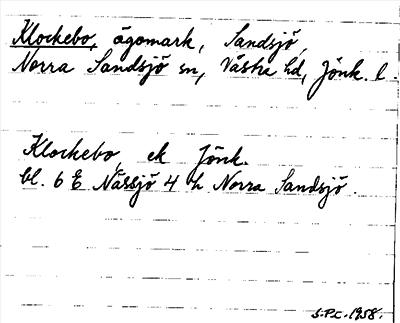 Klockebo, ägomark, Sandsjö,
Norra Sandsjö sn, Västra hd, Jönk. l.
Klockebo, ek Jönk.
bl. 6 E Nässjö 4 h Norra Sandsjö.
S.P.c. 1958.